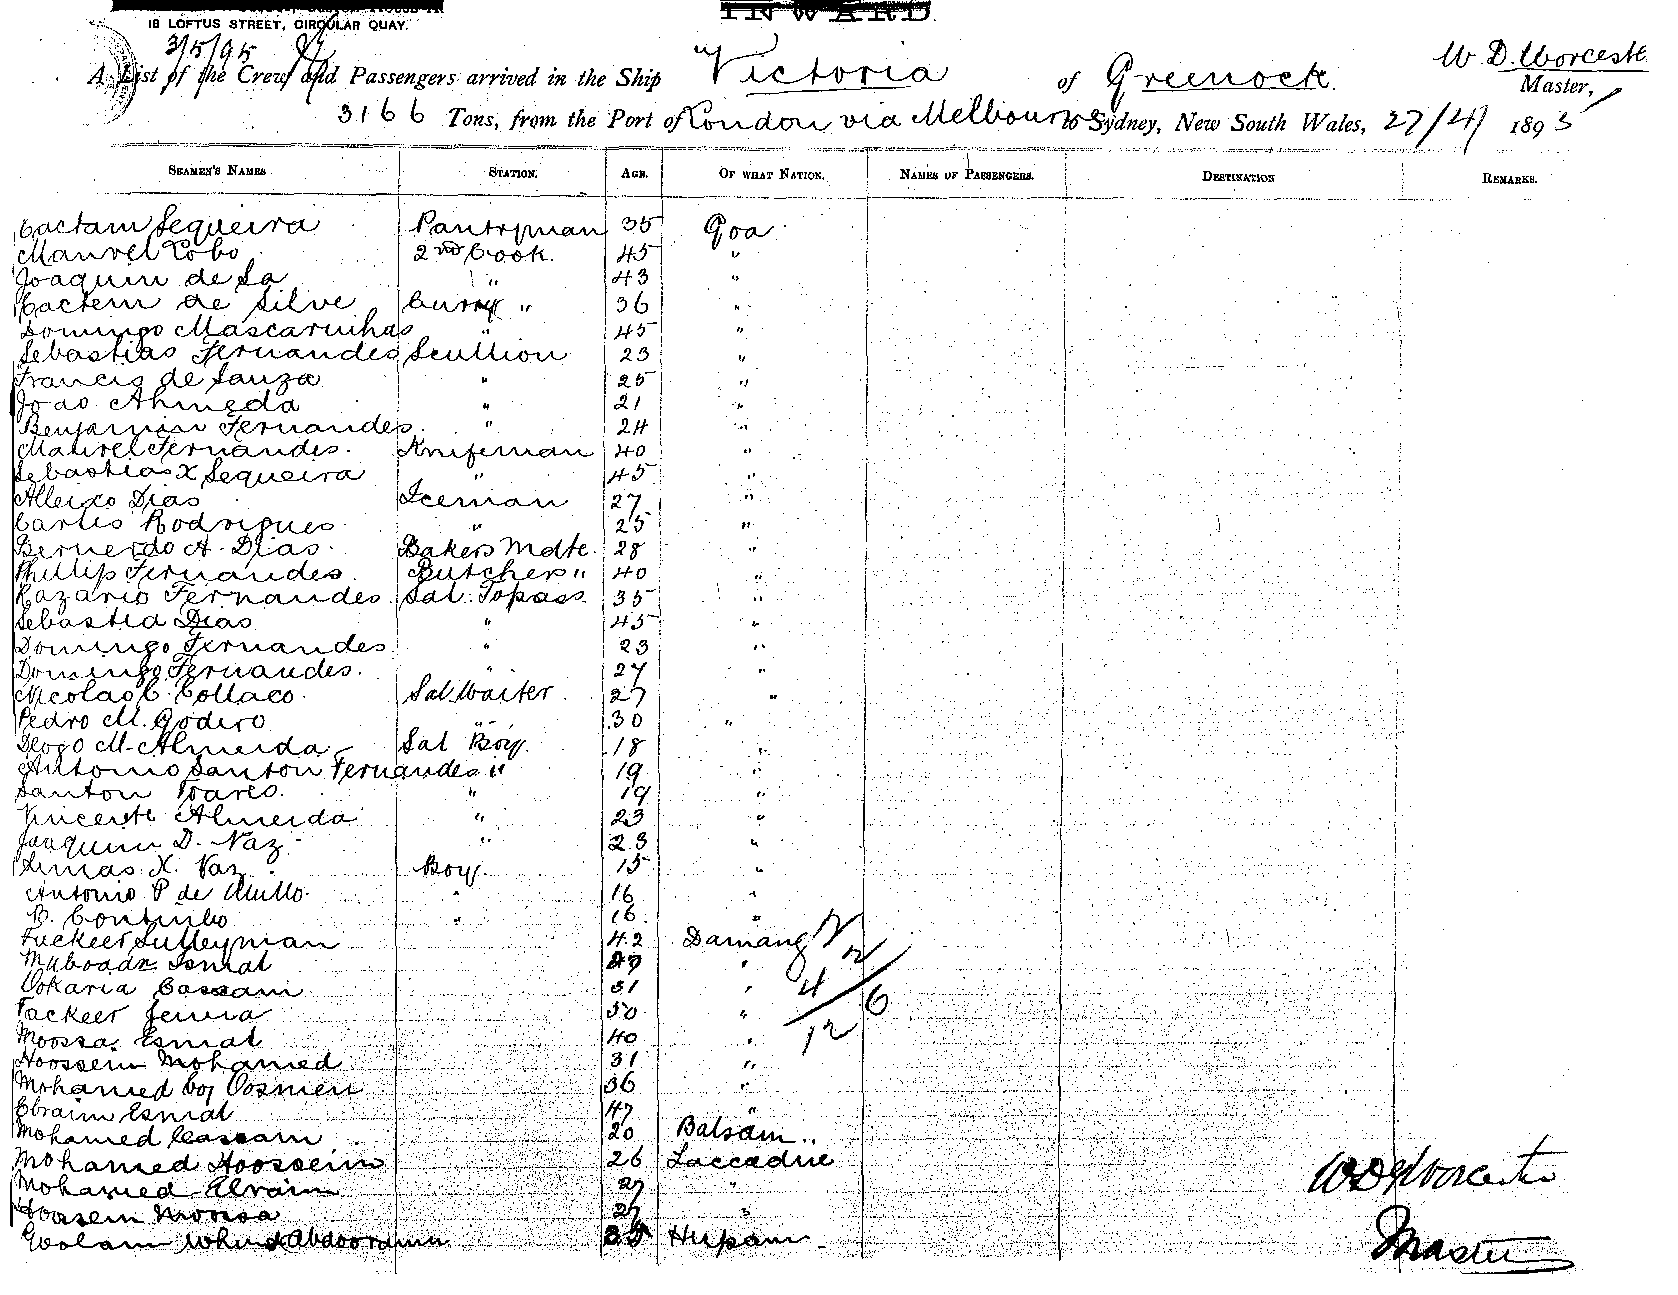 18 LOFTUS STREET, CIRCULAR QUAY.
INWARD
3/5/95
A List of the Crew and Passengers arrived in the Ship "Victoria of Greenock. W D. Worcester Master,
3166 Tons, from the Port of London via Melbourne to Sydney, New South Wales, 27/4/ 1895
SEAMEN'S NAMES STATION. AGE. OF WHAT NATION. NAMES OF PASSENGERS. DESTINATION REMARKS.
Caetam Sequeira Pantryman 35 Goa
Manvel Lobo 2nd Cook. 45 "
Joaquin de Sa " 43 "
Caetem de Silve Curry " 36 "
Domingo Mascarinhas " 45 "
Sebastias Fernandes Scullion 23 "
Francis de Sauza " 25 "
Joao Ahmeda " 21 "
Benjamin Fernandes. " 24 "
Manvel Fernandes. Knifeman 40 "
Sebastias X Sequeira " 45 "
Alleixo Dias Iceman 27 "
Carlis Rodrigues " 25 "
Bernerdo A. Dias. Bakers Mate. 28 "
Phillip Fernandes. Butchers " 40 "
Razario Fernandes Sal. Topass 35 "
Sebastia Dias " 45 "
Domingo Fernandes " 23 "
Domingo Fernandes. " 27 "
Nicolao C. Collaco. Sal Waiter 27 "
Pedro M. Godiro " 30 "
Diogo M. Almeida Sal Boy. 18 "
Antonio Santon Fernandes " 19 "
Santon Soares. " 19 "
Vincente Almeida " 23 "
Joaquim D. Naz. " 23 "
X. Vaz Boy. 15 "
Antonio P de Mello. " 16 "
C. Continho " 16 "
Fuckeer Sulleyman 42 Damang
Esmal "
Ookaria Cassam 31 "
Fackeer Jenna 50 "
Moossa Esmal 40 "
Hoossein Mohamed 31 "
Mohamed Coj Oosmen 36 "
Ebraim Esmal 47 "
Mohamed Cassam 20 Balsam..
Mohamed Hoossein 26 Laccadive
Mohamed Ebraim 27 "
Hoosein Moosa 27 "
Goolam Abdooramn Hupam
4/6
12
W D Worcester
Master